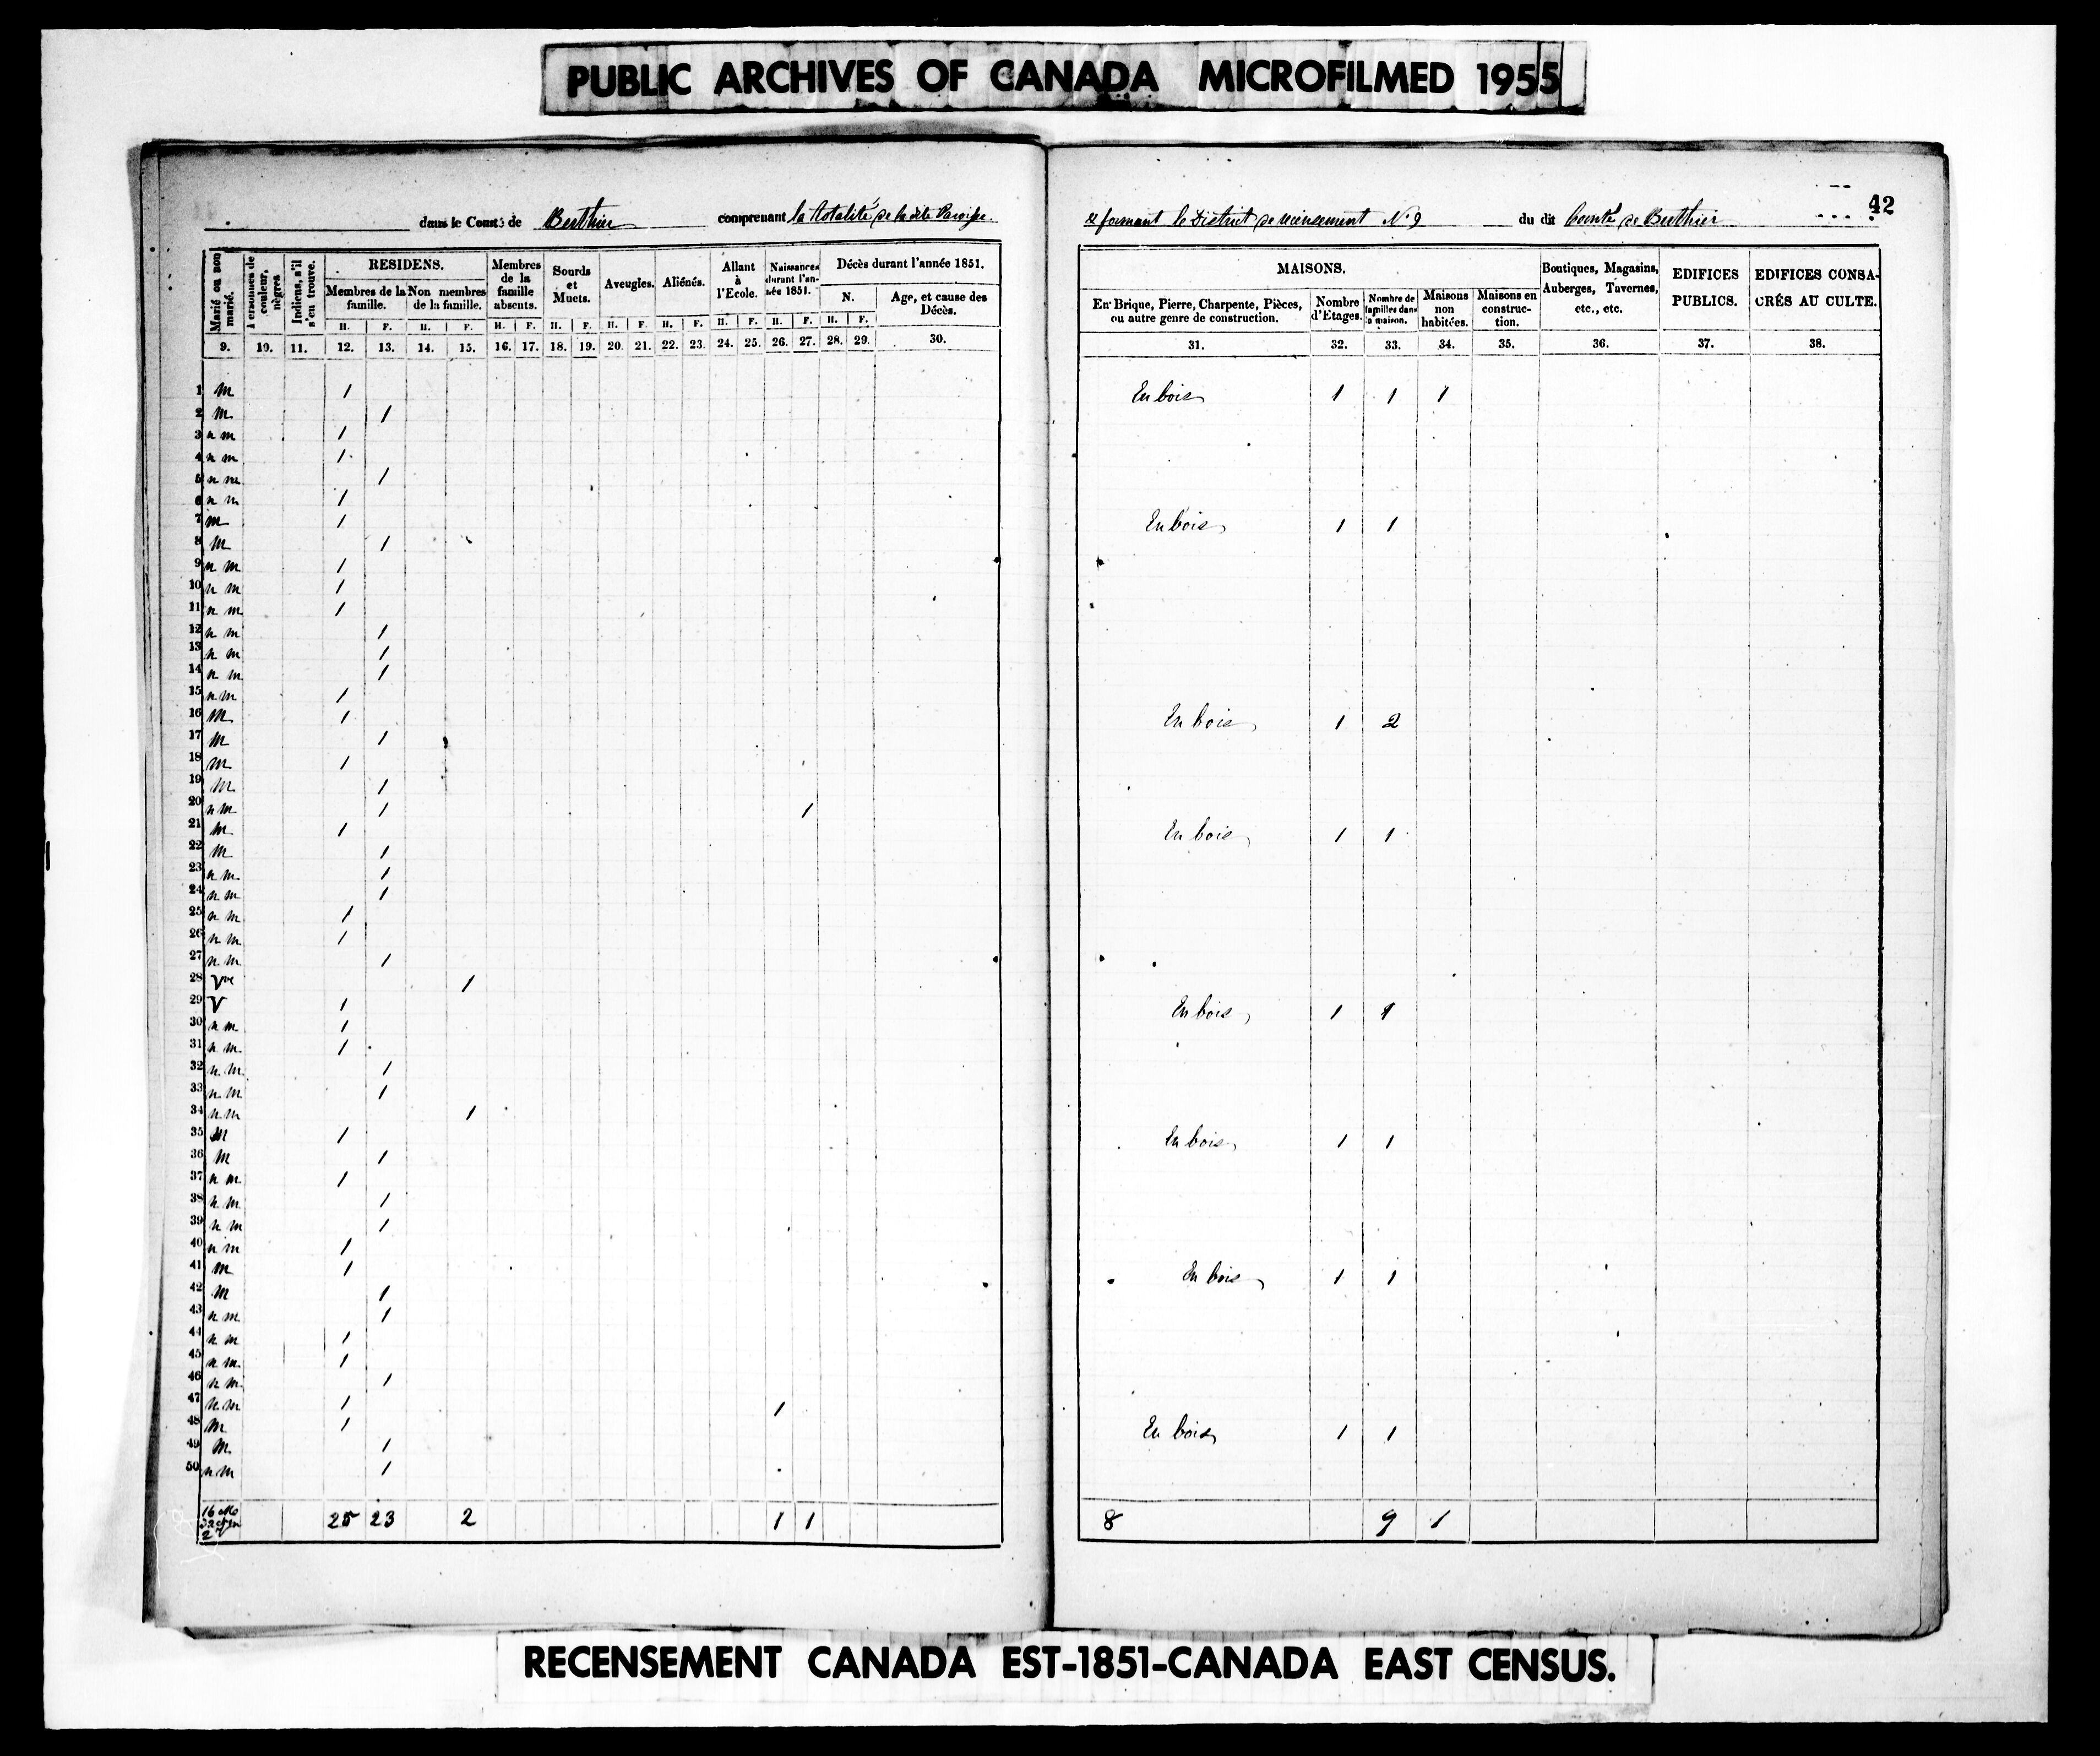 PUBLIC ARCHIVES OF CANADA MICROFILMED 1955
dans le Comté de Berthier comprenant la totalité de la dite Paroisse
et formant le District de recensement No 9 du dit Comté de Berthier
42
Marié ou non marié.
Personnes de couleur, nègres
Indiens, s'il s'en trouve.
RESIDENS.
Membres de la famille.
Non membres de la famille.
Membres de la famille absents.
Sourds et Muets.
Aveugles.
Aliénés.
Allant à l'Ecole.
Naissances durant l'année 1851.
Décès durant l'année 1851.
N.
Age, et cause des Décès.
H. F. H. F. H. F. H. F. H. F. H. F. H. F. H. F. H. F.
9. 10. 11. 12. 13. 14. 15. 16. 17. 18. 19. 20. 21. 22. 23. 24. 25. 26. 27. 28. 29. 30.
MAISONS.
En Brique, Pierre, Charpente, Pièces, ou autre genre de construction.
Nombre d'Etages.
Nombre de familles dans la maison.
Maisons non habitées.
Maisons en construction.
Boutiques, Magasins, Auberges, Tavernes, etc., etc.
EDIFICES PUBLICS.
EDIFICES CONSACRÉS AU CULTE.
31. 32. 33. 34. 35. 36. 37. 38.
1 m 1 En bois 1 1 1
2 m 1
3 n m 1
4 n m 1
5 n m 1
6 n m 1
7 m 1 En bois 1 1
8 m 1
9 n m 1
10 n m 1
11 n m 1
12 n m 1
13 n m 1
14 n m 1
15 n m 1
16 m 1 En bois 1 2
17 m 1
18 m 1
19 m 1
20 n m 1 1
21 m 1 En bois 1 1
22 m 1
23 n m 1
24 n m 1
25 n m 1
26 n m 1
27 n m 1
28 Vve 1
29 V 1 En bois 1 1
30 n m 1
31 n m 1
32 n m 1
33 n m 1
34 n m 1
35 m 1 En bois 1 1
36 m 1
37 n m 1
38 n m 1
39 n m 1
40 n m 1
41 m 1 En bois 1 1
42 m 1
43 n m 1
44 n m 1
45 n m 1
46 n m 1
47 n m 1 1
48 m 1 En bois 1 1
49 m 1
50 n m 1
25 23 2 1 1 8 9 1
RECENSEMENT CANADA EST-1851-CANADA EAST CENSUS.